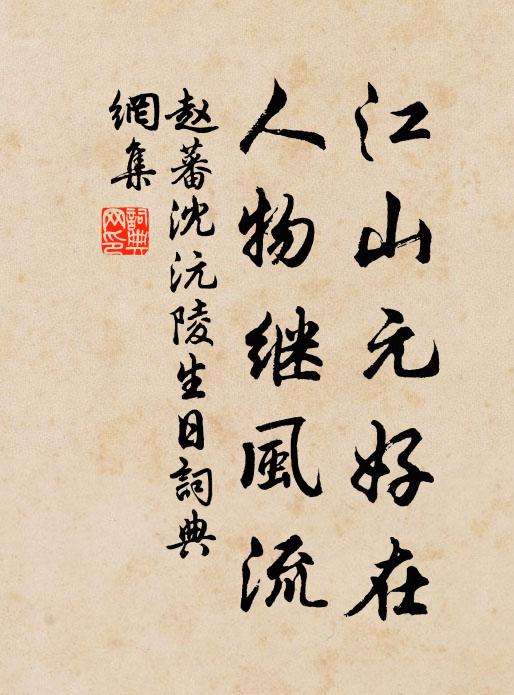 江山元好在
人物继風流
赵蕃沈沅陵生日詞典
網集
詞典
网印